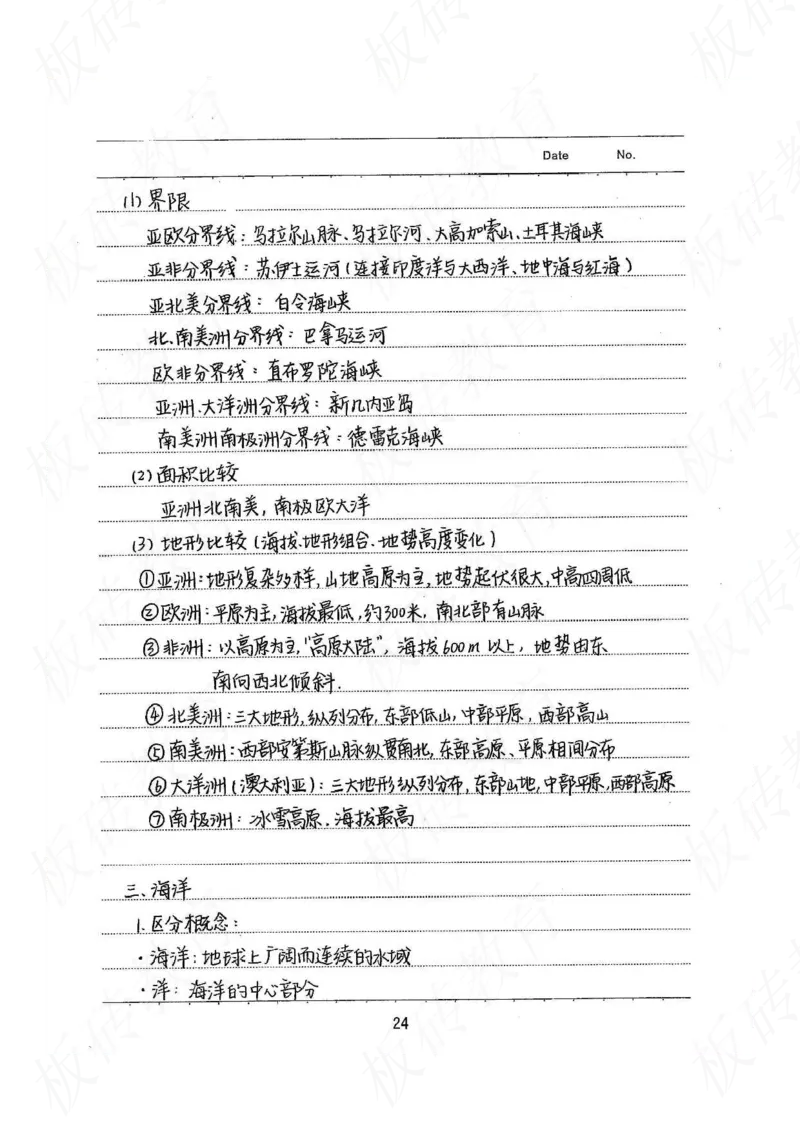 Date No.
(1) 界限
亚欧分界线：乌拉尔山脉、乌拉尔河、大高加索山、土耳其海峡
亚非分界线：苏伊士运河(连接印度洋与大西洋、地中海与红海)
亚北美分界线：白令海峡
北、南美洲分界线：巴拿马运河
欧非分界线：直布罗陀海峡
亚洲、大洋洲分界线：新几内亚岛
南美洲南极洲分界线：德雷克海峡
(2) 面积比较
亚洲北南美，南极欧大洋
(3) 地形比较(海拔、地形组合、地势高度变化)
①亚洲：地形复杂多样，山地高原为主，地势起伏很大，中高四周低
②欧洲：平原为主，海拔最低，约300米，南北部有山脉
③非洲：以高原为主，"高原大陆"，海拔600m以上，地势由东
南向西北倾斜.
④北美洲：三大地形，纵列分布，东部低山，中部平原，西部高山
⑤南美洲：西部安第斯山脉纵贯南北，东部高原、平原相间分布
⑥大洋洲(澳大利亚)：三大地形纵列分布，东部山地，中部平原，西部高原
⑦南极洲：冰雪高原．海拔最高
三、海洋
1. 区分概念：
·海洋：地球上广阔而连续的水域
·洋：海洋的中心部分
24
板砖教育